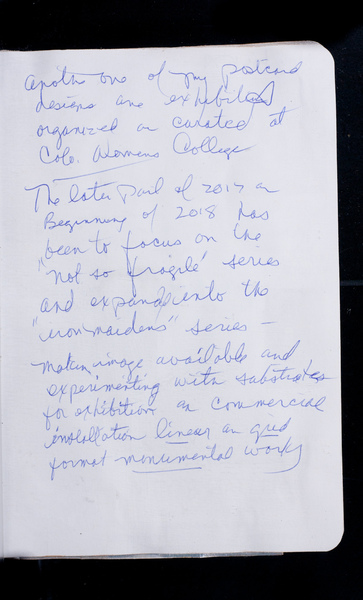 one of my postcard
designs are exhibited
organized or curated at
Colo. Womens College
The later part of 2017 or
Beginning of 2018 has
been to focus on the
"not so fragile" series
and expand into the
"iron maidens" series -
image available and
experimenting with substrates
for exhibition or commercial
installation linear or grid
format monumental works